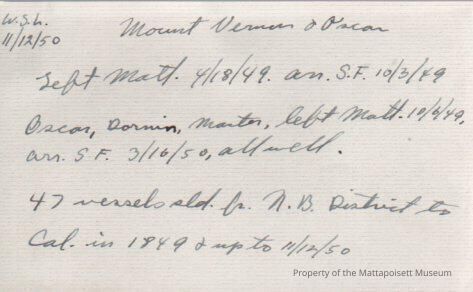 W.S.L.
11/12/50
Mount Vernon & Oscar
Left Matt. 4/18/49. arr. S.F. 10/3/49
Oscar, Dornin, Master, left Matt. 10/6/49,
arr. S F. 3/16/50, all well.
47 vessels sld. fr. N.B. District to
Cal. in 1849 & up to 11/12/50
Property of the Mattapoisett Museum